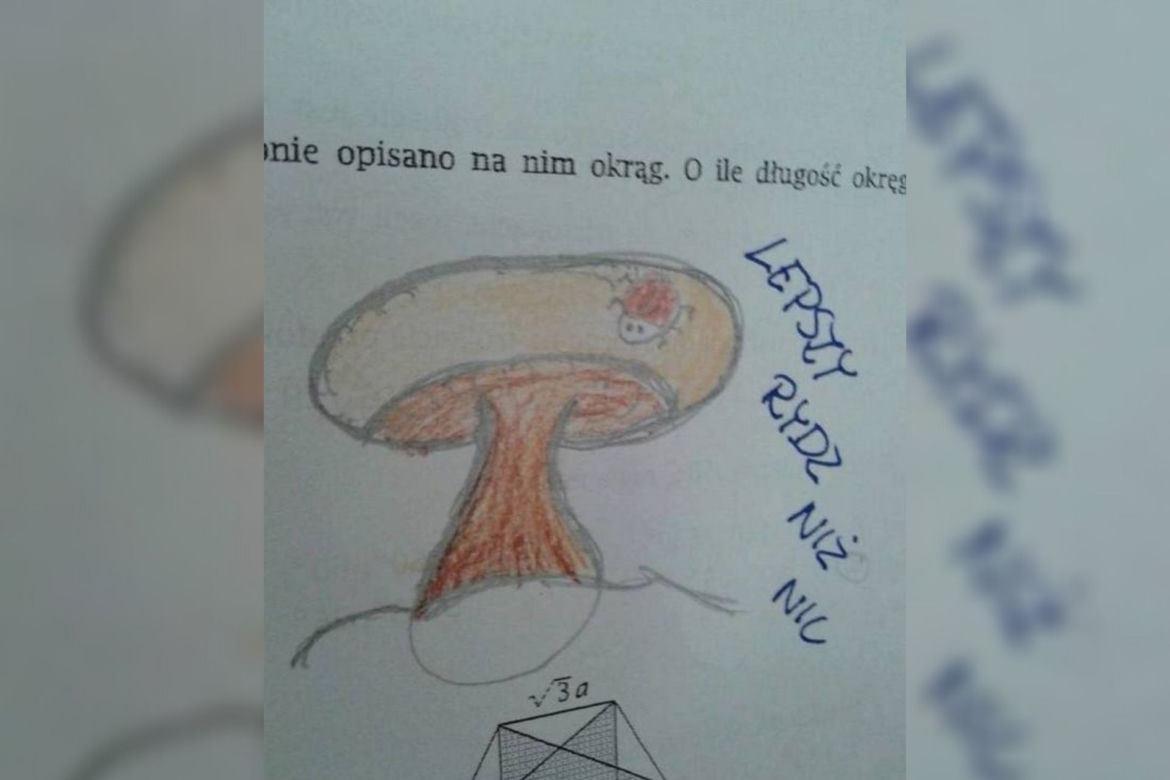 onie opisano na nim okrąg. O ile długość okręg
LEPSZY
RYDZ
NIŻ
NIC
√3a